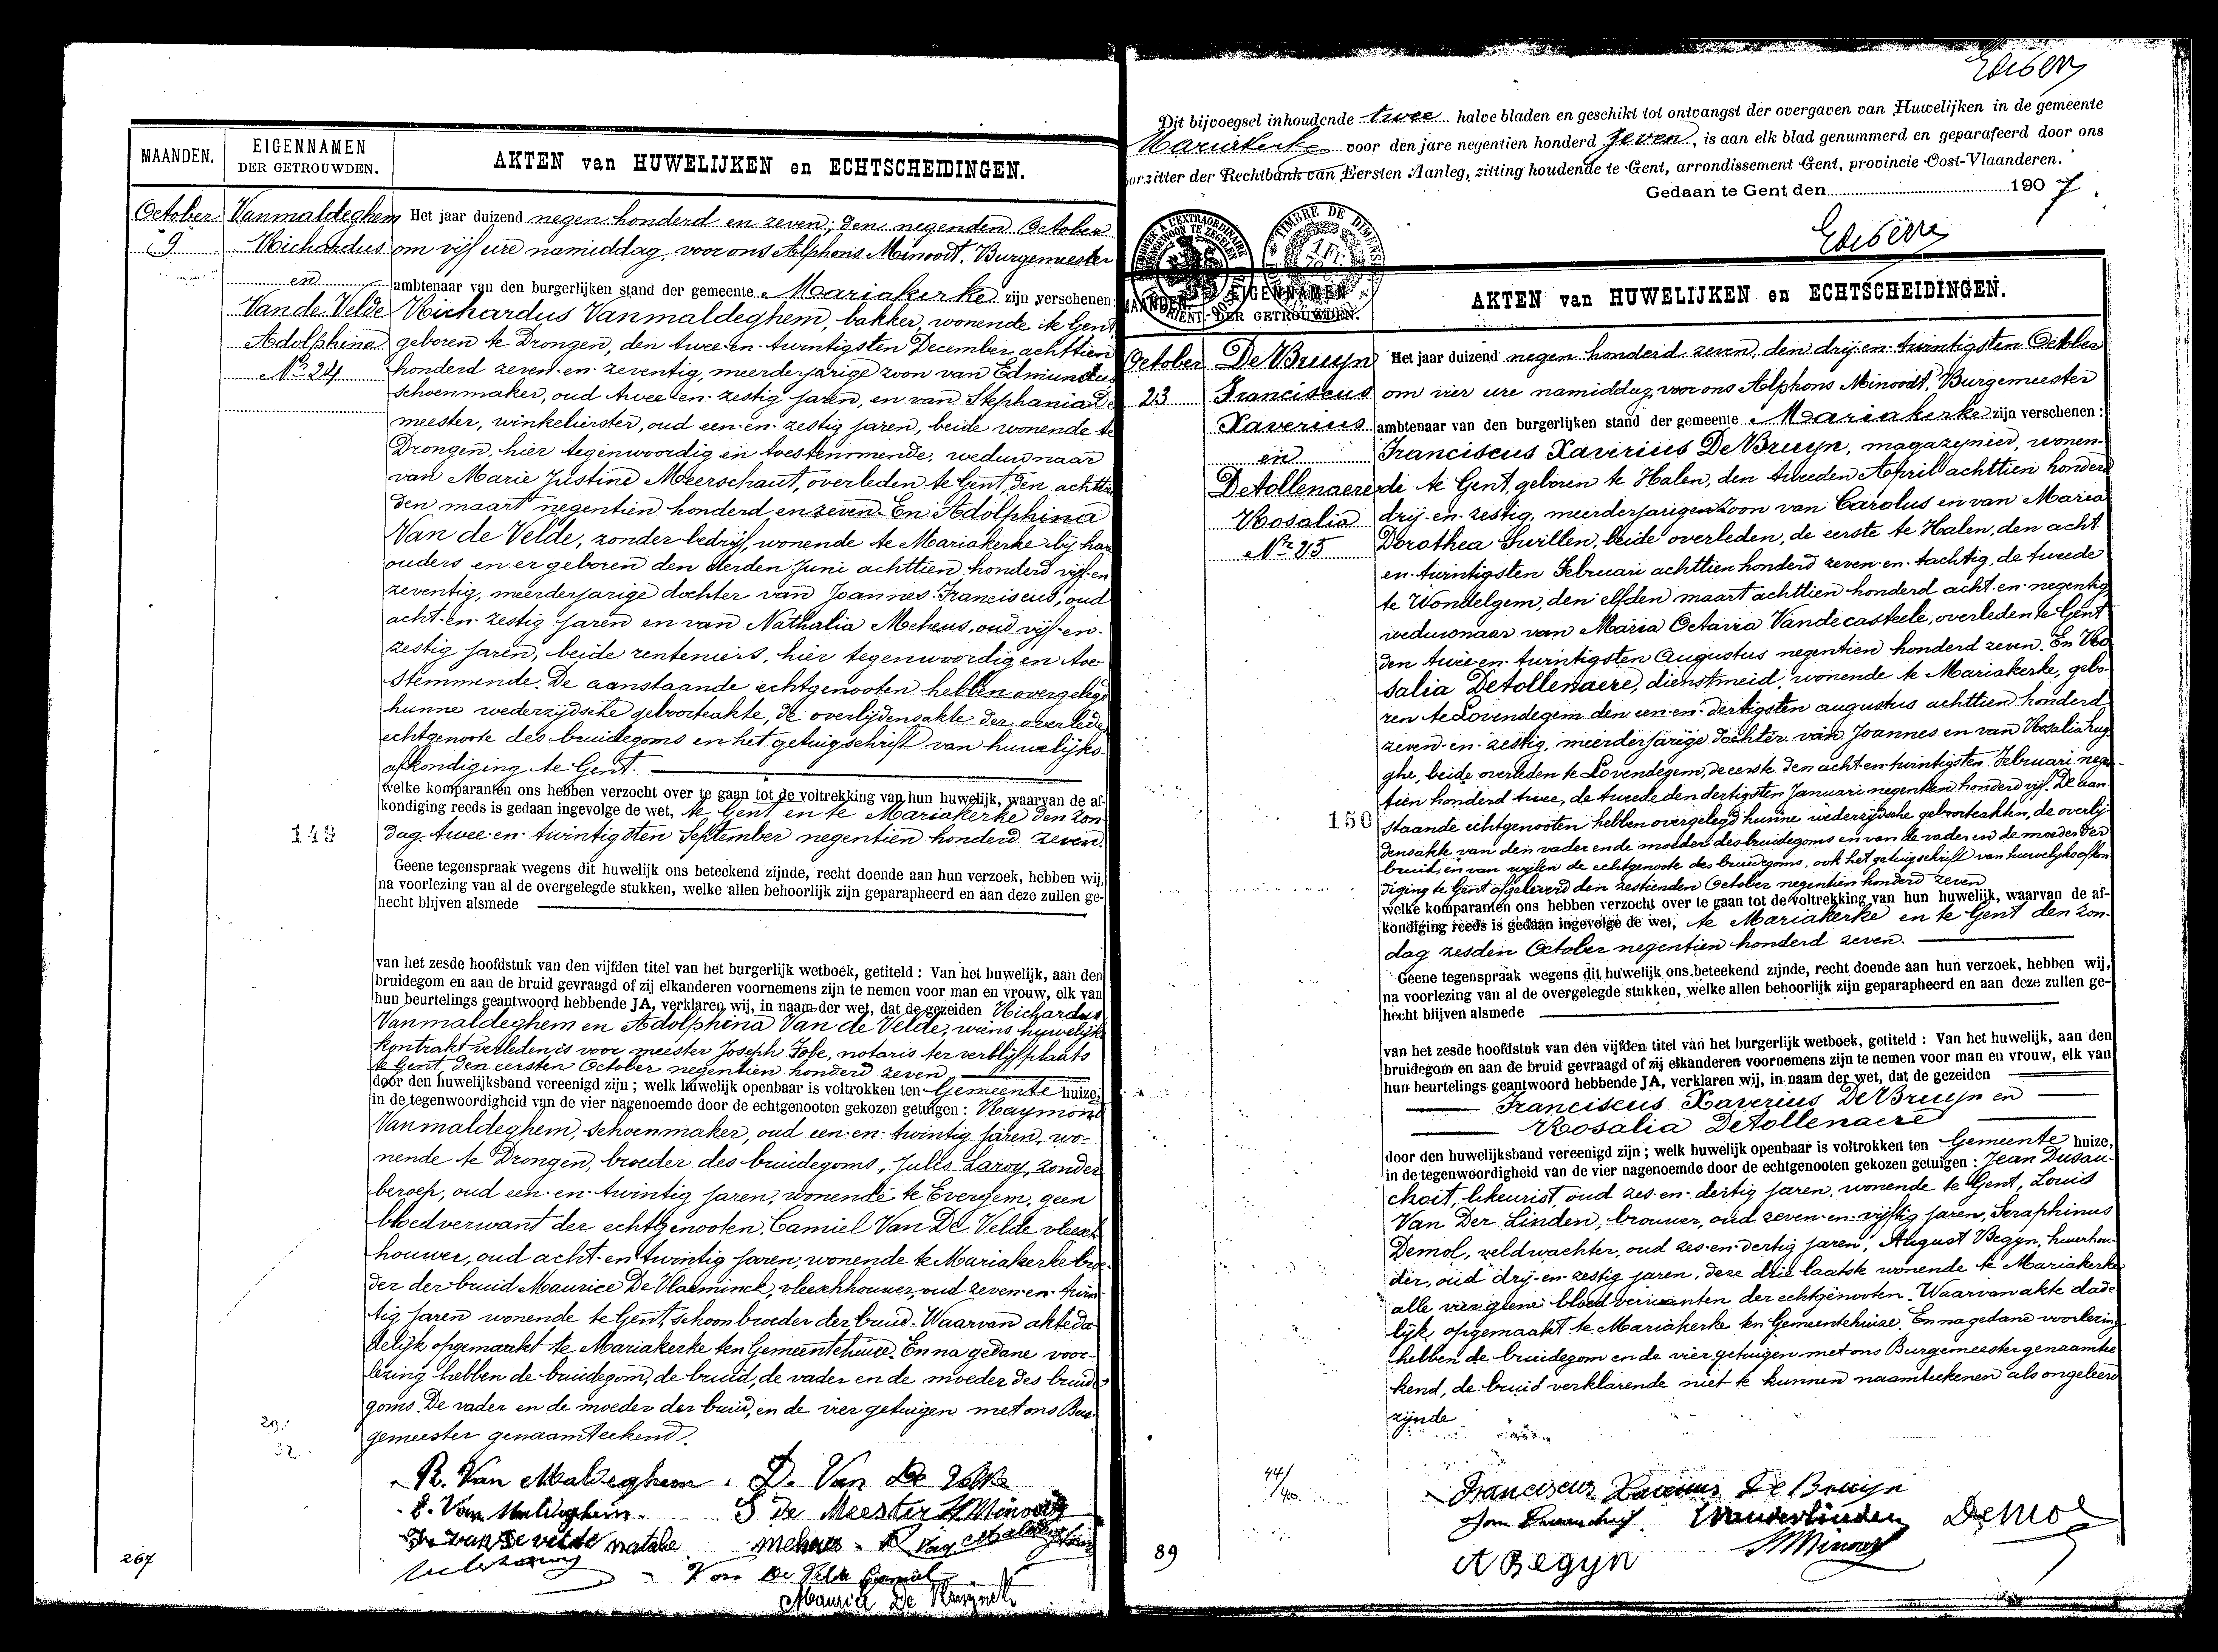 MAANDEN.
EIGENNAMEN
DER GETROUWDEN.
AKTEN van HUWELIJKEN en ECHTSCHEIDINGEN.
October
9
Vanmaldeghem
Richardus
en
Van de Velde
Adolphina
Nr 24
Het jaar duizend negen honderd en zeven, den negenden October
om vijf ure namiddag, voor ons Alphons Minoodt, Burgemeester
ambtenaar van den burgerlijken stand der gemeente Mariakerke zijn verschenen:
Richardus Vanmaldeghem, bakker, wonende te Gent,
geboren te Drongen, den twee-en-twintigsten December achttien
honderd zeven-en-zeventig, meerderjarige zoon van Edmundus
schoenmaker, oud twee-en-zestig jaren, en van Stephania De
meester, winkelierster, oud een-en-zestig jaren, beide wonende te
Drongen, hier tegenwoordig en toestemmende, weduwnaar
van Marie Justine Meerschaut, overleden te Gent, den achttien
den maart negentien honderd en zeven. En Adolphina
Van de Velde, zonder bedrijf, wonende te Mariakerke bij har
ouders en er geboren den derden Juni achttien honderd vijf-en
zeventig, meerderjarige dochter van Joannes Franciscus, oud
acht-en-zestig jaren en van Nathalia Meheus, oud vijf-en-
zestig jaren, beide renteniers, hier tegenwoordig en toe
stemmende. De aanstaande echtgenooten hebben overgelegd
hunne wederzijdsche geboorteakte, de overlijdensakte der overlede
echtgenoote des bruidegoms en het getuigschrift van huwelijks
afkondiging te Gent.
welke komparanten ons hebben verzocht over te gaan tot de voltrekking van hun huwelijk, waarvan de af-
kondiging reeds is gedaan ingevolge de wet, te Gent en te Mariakerke den zon
dag twee-en-twintigsten September negentien honderd zeven.
149
Geene tegenspraak wegens dit huwelijk ons beteekend zijnde, recht doende aan hun verzoek, hebben wij,
na voorlezing van al de overgelegde stukken, welke allen behoorlijk zijn geparapheerd en aan deze zullen ge-
hecht blijven alsmede
van het zesde hoofdstuk van den vijfden titel van het burgerlijk wetboek, getiteld : Van het huwelijk, aan den
bruidegom en aan de bruid gevraagd of zij elkanderen voornemens zijn te nemen voor man en vrouw, elk van
hun beurtelings geantwoord hebbende JA, verklaren wij, in naam der wet, dat de gezeiden Richardus
Vanmaldeghem en Adolphina Van de Velde, wiens huwelijks
kontrakt verleden is voor meester Joseph Fobe, notaris ter verblijfplaats
te Gent, den eersten October negentien honderd zeven
door den huwelijksband vereenigd zijn ; welk huwelijk openbaar is voltrokken ten Gemeente huize,
in de tegenwoordigheid van de vier nagenoemde door de echtgenooten gekozen getuigen : Raymond
Vanmaldeghem, schoenmaker, oud een-en-twintig jaren, wo-
nende te Drongen, broeder des bruidegoms, Jules Laroy, zonder
beroep, oud een-en-twintig jaren, wonende te Evergem, geen
bloedverwant der echtgenooten, Camiel Van De Velde vleesch
houwer, oud acht-en-twintig jaren, wonende te Mariakerke broe-
der der bruid Maurice De Vlaeminck, vleeschhouwer, oud zeven-en-twin
tig jaren wonende te Gent, schoonbroeder der bruid. Waarvan akte da
delijk opgemaakt te Mariakerke ten Gemeentehuize. En na gedane voor-
lezing hebben de bruidegom, de bruid, de vader en de moeder des bruide
goms. De vader en de moeder der bruid, en de vier getuigen met ons Bur-
gemeester genaamteekend.
R. Van Maldeghem. D. Van De Velde
E. Van Maldeghem. S De Meester A Minoodt
Van de velde natalie meheus R Van Maldeghem
Van De Velde Camiel
Maurice De
267
Dit bijvoegsel inhoudende twee halve bladen en geschikt tot ontvangst der overgaven van Huwelijken in de gemeente
Mariakerke voor den jare negentien honderd zeven, is aan elk blad genummerd en geparafeerd door ons
orzitter der Rechtbank van Eersten Aanleg, zitting houdende te Gent, arrondissement Gent, provincie Oost-Vlaanderen.
Gedaan te Gent den 1907.
TIMBRE DE DIMENSION
1 FR.
MAANDEN
EIGENNAMEN
DER GETROUWDEN.
AKTEN van HUWELIJKEN en ECHTSCHEIDINGEN.
October
23
De Bruyn
Franciscus
Xaverius
en
Detollenaere
Rosalia
Nr 25
Het jaar duizend negen honderd zeven, den drij-en-twintigsten October
om vier ure namiddag, voor ons Alphons Minoodt, Burgemeester
ambtenaar van den burgerlijken stand der gemeente Mariakerke zijn verschenen :
Franciscus Xaverius De Bruyn, magazynier, wonen-
de te Gent, geboren te Halen, den tweeden April achttien honderd
drij-en-zestig, meerderjarigen zoon van Carolus en van Maria
Dorothea Swillen, beide overleden, de eerste te Halen, den acht
en-twintigsten Februari achttien honderd zeven-en-tachtig, de tweede
te Wondelgem, den elfden maart achttien honderd acht-en-negentig
weduwnaar van Maria Octavia Vandecasteele, overleden te Gent
den twee-en-twintigsten Augustus negentien honderd zeven. En Ro
salia Detollenaere, dienstmeid, wonende te Mariakerke, gebo-
ren te Lovendegem den een-en-dertigsten augustus achttien honderd
zeven-en-zestig, meerderjarige dochter van Joannes en van Rosalia Lug
ghe, beide overleden te Lovendegem, de eerste den acht-en-twintigsten Februari negen-
tien honderd twee, de tweede den dertigsten Januari negentien honderd vijf. De aan-
staande echtgenooten hebben overgelegd hunne wederzijdsche geboorteakten, de overlij-
densakte van den vader en de moeder des bruidegoms en van de vader en de moeder der
bruid, en van wijlen de echtgenoote des bruidegoms, ook het getuigschrift van huwelyksafkon
diging te Gent afgeleverd den zestienden October negentien honderd zeven
150
welke komparanten ons hebben verzocht over te gaan tot de voltrekking van hun huwelijk, waarvan de af-
kondiging reeds is gedaan ingevolge de wet, te Mariakerke en te Gent den zon-
dag zesden October negentien honderd zeven.
Geene tegenspraak wegens dit huwelijk ons beteekend zijnde, recht doende aan hun verzoek, hebben wij,
na voorlezing van al de overgelegde stukken, welke allen behoorlijk zijn geparapheerd en aan deze zullen ge-
hecht blijven alsmede
van het zesde hoofdstuk van den vijfden titel van het burgerlijk wetboek, getiteld : Van het huwelijk, aan den
bruidegom en aan de bruid gevraagd of zij elkanderen voornemens zijn te nemen voor man en vrouw, elk van
hun beurtelings geantwoord hebbende JA, verklaren wij, in naam der wet, dat de gezeiden
Franciscus Xaverius De Bruyn en
Rosalia Detollenaere
door den huwelijksband vereenigd zijn ; welk huwelijk openbaar is voltrokken ten Gemeente huize,
in de tegenwoordigheid van de vier nagenoemde door de echtgenooten gekozen getuigen : Jean Dusau-
choit, likeurist, oud zes-en-dertig jaren, wonende te Gent, Louis
Van Der Linden, brouwer, oud zeven-en-vijftig jaren, Seraphinus
Demol, veldwachter, oud zes-en-dertig jaren, August Begyn, huurhou-
der, oud drij-en-zestig jaren, deze drie laatste wonende te Mariakerke
alle vier geene bloedverwanten der echtgenooten. Waarvan akte dade
lijk opgemaakt te Mariakerke ten Gemeentehuize. En na gedane voorlezing
hebben de bruidegom en de vier getuigen met ons Burgemeester genaamtee
kend, de bruid verklarende niet te kunnen naamteekenen als ongeleerd
zijnde
Franciscus Xaverius De Bruijn
L Vanderlinden Demol
A Begyn A Minoodt
89